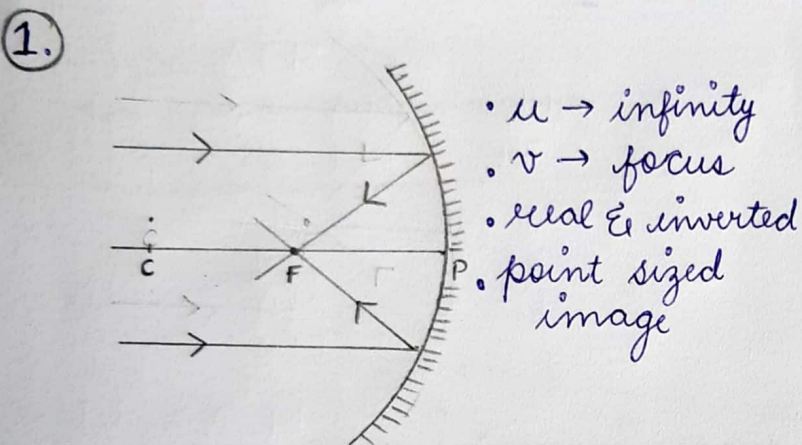 1.
• u → infinity
• v → focus
• real & inverted
• point sized
image
C
F
P